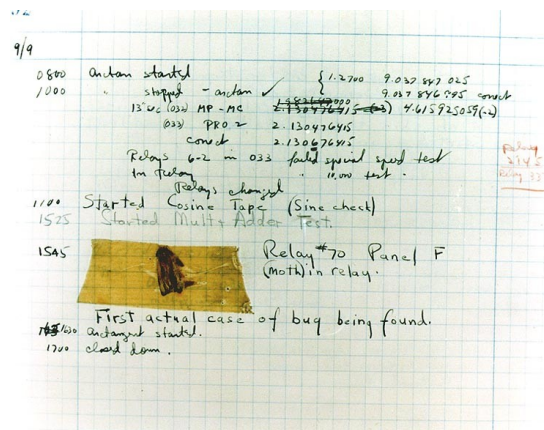 9/9
0800 antan started
1000 " stopped - antan ✓ { 1.2700 9.037 847 025
9.037 846 995 correct
13"uc (032) MP - MC 1.982647000 2.130476415 (-3) 4.615925059(-2)
(033) PRO 2 2.130476415
correct 2.130676415
Relays 6-2 in 033 failed special speed test
in Relay " 10,000 test.
Relays changed
Relay 2145
Relay 3370
1100 Started Cosine Tape (Sine check)
1525 Started Mult+Adder Test.
1545 Relay #70 Panel F
(moth) in relay.
First actual case of bug being found.
1630 antangent started.
1700 closed down.